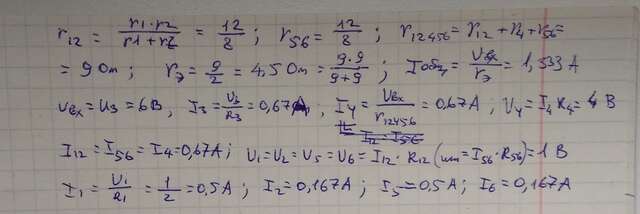 r₁₂ = r1·r2 / r1+r2 = 12/8 ; r₅₆ = 12/8 ; r₁₂₄₅₆ = r₁₂ + r₄ + r₅₆ =
= 9 Ом ; rэ = 9/2 = 4,5 Ом = 9·9 / 9+9 ; Iобщ = Uвх / rэ = 1,333 А
Uвх = U₃ = 6В , I₃ = U₃ / R₃ = 0,67А , I₄ = Uвх / r₁₂₄₅₆ = 0,67А ; U₄ = I₄ R₄ = 4 В
I₁₂ = I₅₆
I₁₂ = I₅₆ = I₄ = 0,67А ; U₁ = U₂ = U₅ = U₆ = I₁₂ · R₁₂ (или = I₅₆ · R₅₆) = 1 В
I₁ = U₁ / R₁ = 1/2 = 0,5 А ; I₂ = 0,167А ; I₅ = 0,5А ; I₆ = 0,167А